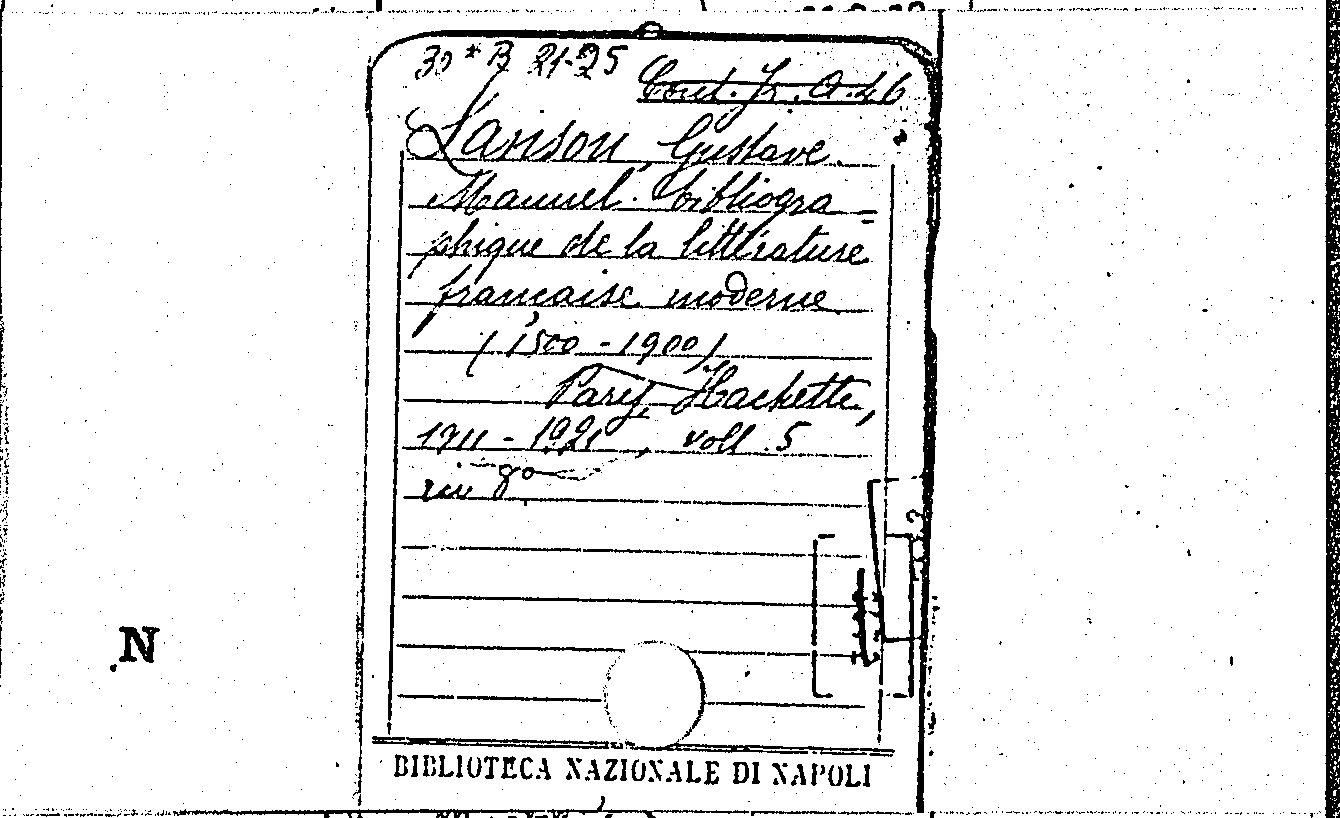 30 * B 21-25
Cont. fr. A. 46
Lanson, Gustave.
Manuel bibliogra=
phique de la littérature
française moderne
(1500-1900)
Paris, Hachette,
1911-1921, voll. 5
in 8º
N
BIBLIOTECA NAZIONALE DI NAPOLI